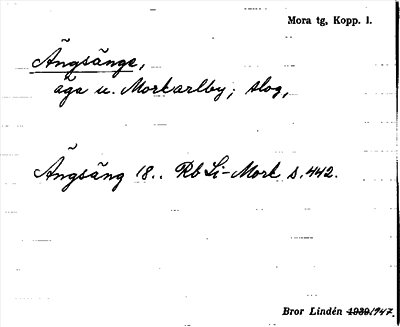 Mora tg, Kopp. l.
Ängsänge,
äga u. Morkarlby; slog,
Ängsäng 18.. Rb Li-Mork s. 442.
Bror Lindén 1939. 1947.